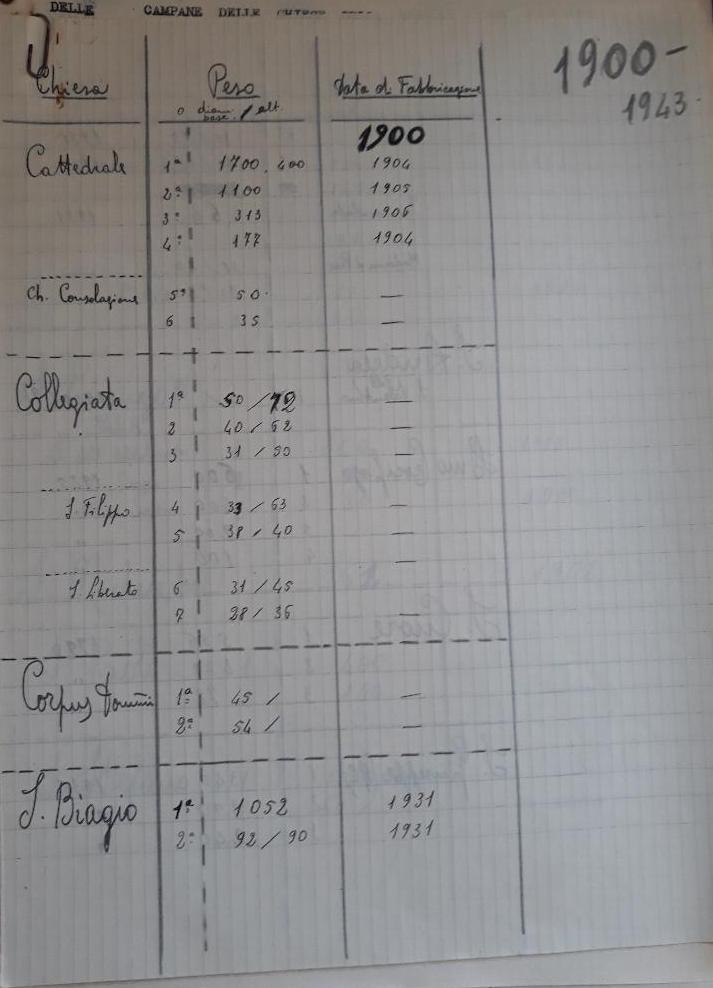 DELLE CAMPANE DELLE
1900-
1943
Chiesa Peso Data di Fabbricazione
o diam. base / alt.
1900
Cattedrale 1ª 1700.400 1904
2ª 1100 1905
3ª 313 1905
4ª 177 1904
Ch. Consolazione 5ª 50 —
6 35 —
Collegiata 1ª 50 / 72 —
2 40 / 52 —
3 31 / 50 —
S. Filippo 4 33 / 63 —
5 38 / 40 —
—
S. Liberato 6 31 / 45
7 28 / 36 —
Corpus Domini 1ª 45 / —
2ª 54 / —
S. Biagio 1ª 1052 1931
2ª 92 / 90 1931